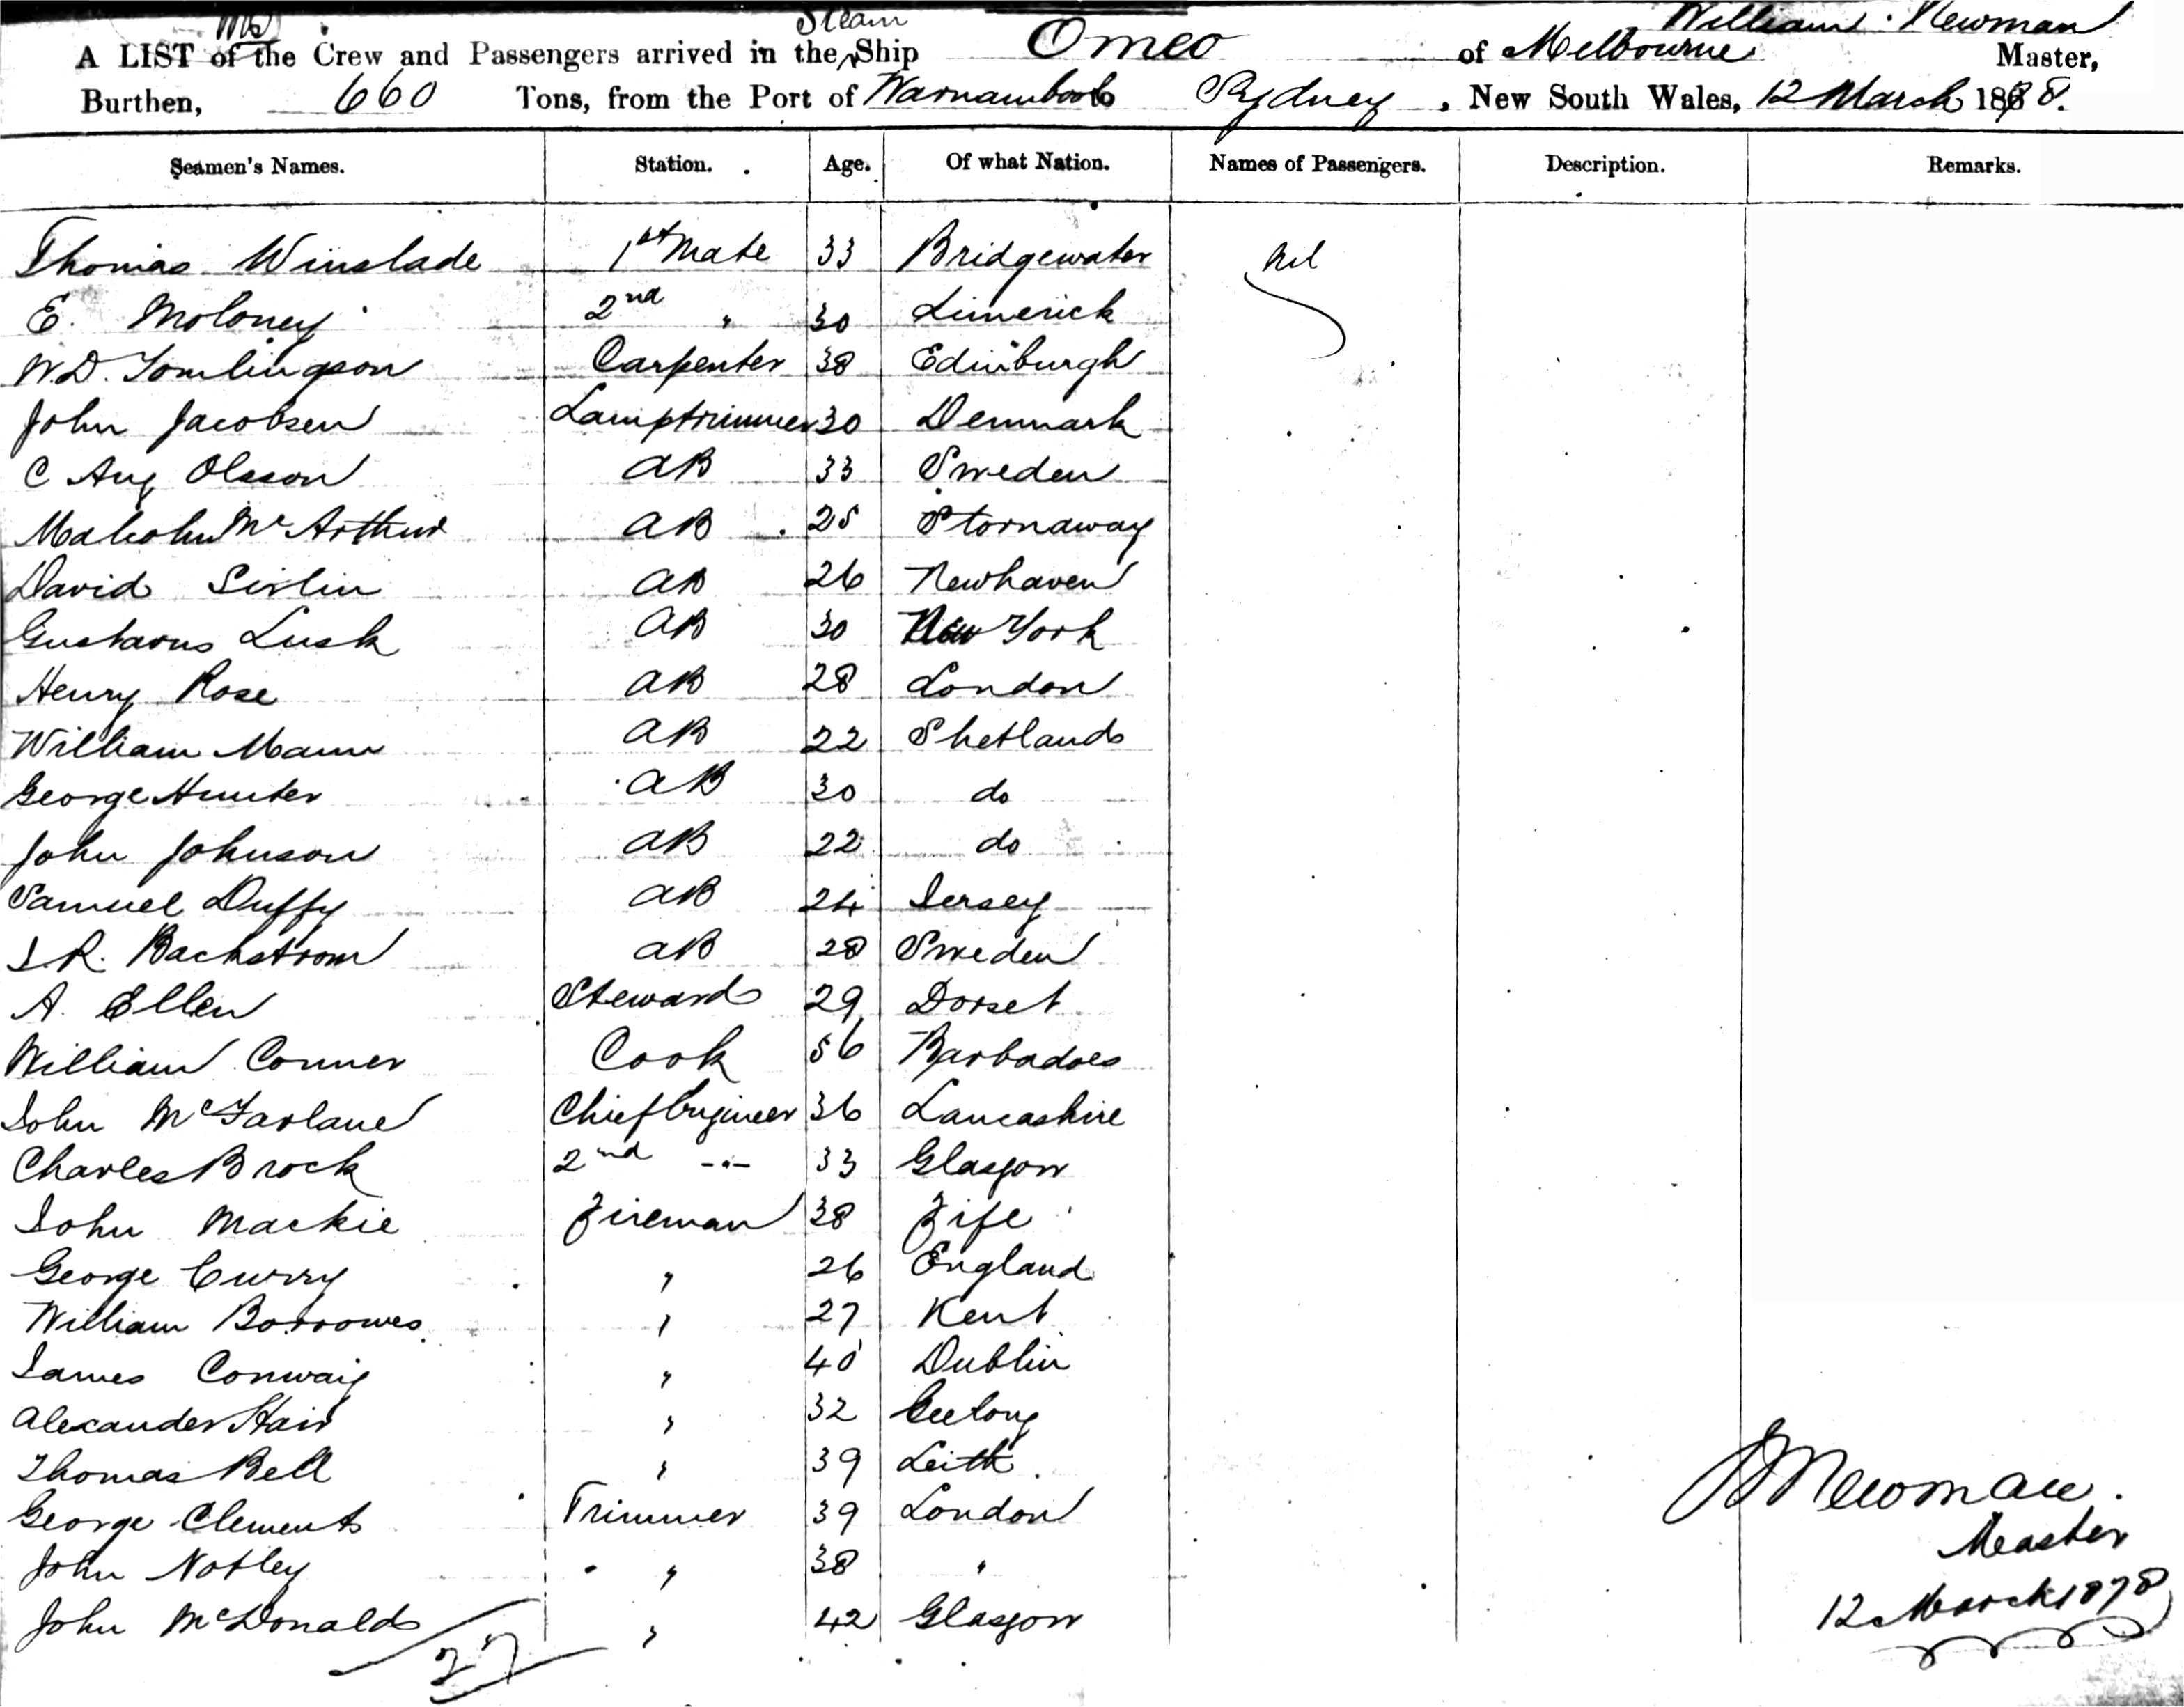 Steam William Newman
A LIST of the Crew and Passengers arrived in the Ship Omeo of Melbourne Master,
Burthen, 660 Tons, from the Port of Warnambool Sydney, New South Wales, 12 March 1878.
Seamen's Names. Station. Age. Of what Nation. Names of Passengers. Description. Remarks.
Thomas Winslade 1st Mate 33 Bridgewater Nil
E. Moloney 2nd " 30 Limerick
W.D. Tomlingson Carpenter 38 Edinburgh
John Jacobsen Lamptrimmer 30 Denmark
C Aug Olsson AB 33 Sweden
Malcolm McArthur AB 25 Stornaway
David Sirlin AB 26 Newhaven
Gustavus Lusk AB 30 New York
Henry Rose AB 28 London
William Mann AB 22 Shetlands
George Hunter AB 30 do
John Johnson AB 22 do
Samuel Duffy AB 24 Jersey
J.R. Backstrom AB 28 Sweden
A. Ellen Steward 29 Dorset
William Conner Cook 56 Barbadoes
John McFarlane Chief Engineer 36 Lancashire
Charles Brock 2nd -"- 33 Glasgow
John Mackie Fireman 38 Fife
George Curry " 26 England
William Borrowes " 27 Kent
James Conway " 40 Dublin
Alexander Hair " 32 Geelong
Thomas Bell " 39 Leith
George Clements Trimmer 39 London
John Notley " 38 "
John McDonald " 42 Glasgow
27
Newman.
Master
12 March 1878